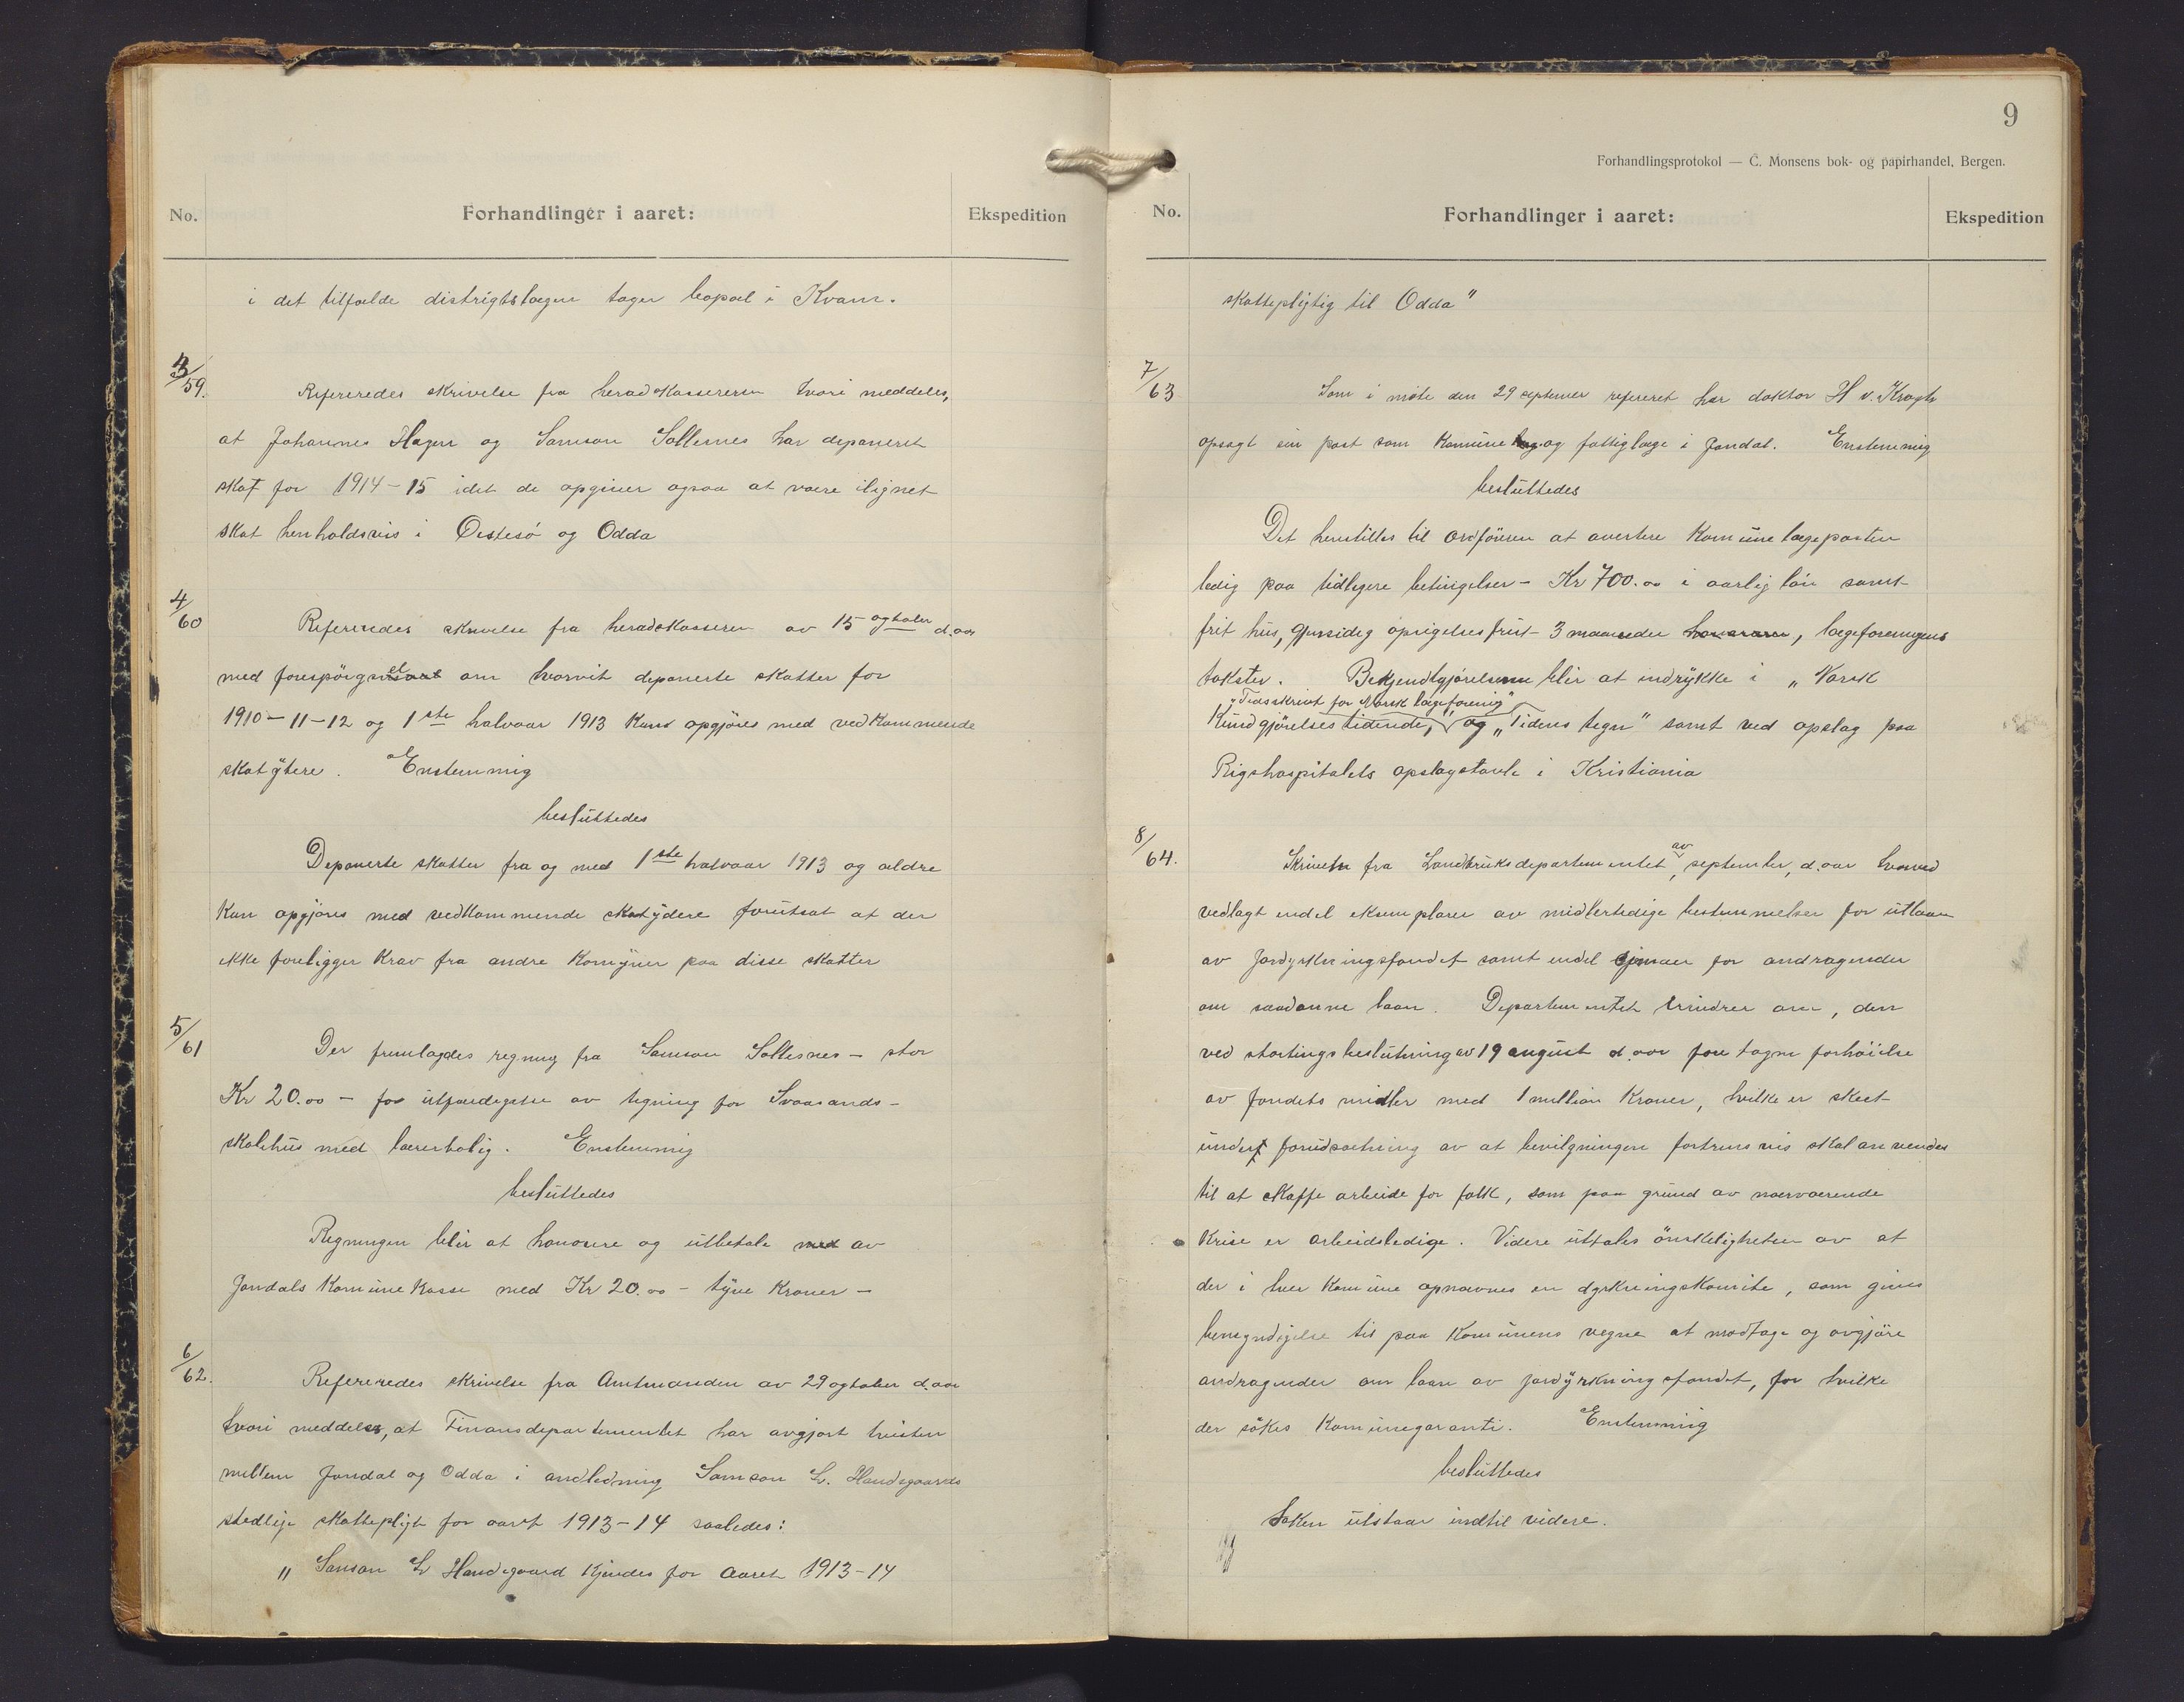 No.
Forhandlinger i aaret:
Ekspedition
i det tilfælde distrigtslægen tager bopæl i Kvam.
3/59.
Refereredes skrivelse fra heradskassereren hvori meddeles,
at Johannes Hagen og Samson Sollesnes har deponeret
skat for 1914-15 idet de opgiver ogsaa at være ilignet
skat henholdsvis i Østesö og Odda
4/60
Refereredes skrivelse fra heradskasseren av 15 ogtober d.aar
med forespörgsel om hvorvit deponerte skatter for
1910-11-12 og 1ste halvaar 1913 kund opgjöres med vedkommende
skatytere. Enstemmig
besluttedes
Deponerte skatter fra og med 1ste halvaar 1913 og ældre
kan opgjöres med vedkommende skatydere forutsat at der
ikke foreligger krav fra andre komyner paa disse skatter
5/61
Der fremlagdes regning fra Samson Sollesnes - stor
Kr 20.00 - for utfærdigelse av tegning for Svaasands-
skolehus med lærerbolig. Enstemmig
besluttedes
Regningen blir at honorere og utbetale med av
Jondals Komunekasse med Kr 20.00 - tyve kroner -
6/62.
Refereredes skrivelse fra Amtmanden av 29 ogtober d.aar
hvori meddeles, at Finansdepartementet har avgjort tvisten
mellem Jondal og Odda i andledning Samson L. Handegaards
stedlige skattepligt for aaret 1913-14 saaledes:
" Samson L Handegaard kjendes for aaret 1913-14
9
Forhandlingsprotokol — C. Monsens bok- og papirhandel, Bergen.
No.
Forhandlinger i aaret:
Ekspedition
skattepligtig til Odda"
7/63
Som i möte den 29 septemer referert har doktor H v. Krogh
opsagt sin post som Komune og fattiglæge i Jondal. Enstemmig
besluttedes
Det henstilles til ordföreren at avertere Komunelægeposten
ledig paa tidligere betingelser - Kr 700.00 i aarlig lön samt
frit hus, gjensidig opsigelsesfrist 3 maaneder, lægeforeningens
takster. Bekjendtgjørelsene blir at indrykke i „Norsk
„Tidsskrivt for Norsk lægeforenig"
Kundgjörelsestidende, og „Tidens tegn" samt ved opslag paa
Rigshospitalets opslagstavle i Kristiania
8/64.
av
Skrivelse fra Landbruksdepartementet, september, d.aar hvorved
vedlagt endel eksemplarer av midlertidige bestemmelser for utlaan
av Jordyrkningsfondet samt endel for andragender
om saadanne laan. Departementet erindrer om, den
ved stortingsbeslutning av 19 august d.aar foretagne forhöielse
av fondets midler med 1 million kroner, hvilke er skeet
under forudsætning av at bevilgningen fortrinsvis skal anvendes
til at skaffe arbeide for folk, som paa grund av nærværende
krise er arbeidsledige. Videre uttales önskeligheten av at
der i hver komune opnævnes en dyrkningskomite, som gives
bemyndigelse til paa komunens vegne at modtage og avgjöre
andragender om laan av jordyrkningsfondet, for hvilke
der sökes komunegaranti. Enstemmig
besluttedes
Saken utstaar indtil videre.